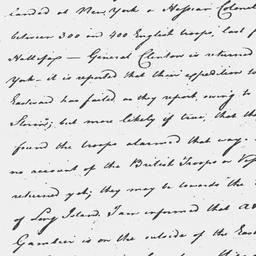 landed at New York a Hessian Colonel
between 300 and 400 English troops, last f
Hallifax — General Clinton is returned
York – it is reported that their expedition to
Eastward has failed as they report owing to
Storm; but more likely if true, that the
found the troops alarmed that way.
no account of the British Troops or Ves
returned yet; they may be towards the
of Long Island. I am informed that Ad
Gambier is on the outside of the East